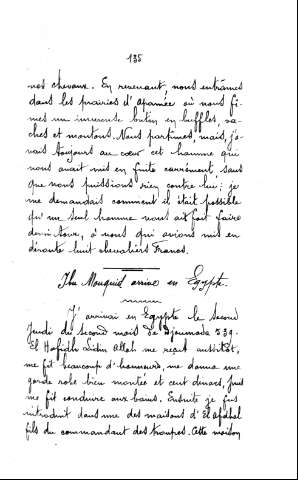 135
nos chevaux. En revenant, nous entrâmes
dans les prairies d'Apamée où nous fî-
mes un immense butin en buffles, va-
ches et moutons. Nous partîmes, mais, j'a-
vais toujours au cœur cet homme qui
nous avait mis en fuite carrément, sans
que nous puissions rien contre lui; je
me demandais comment il était possible
qu'un seul homme nous ait fait faire
demi-tour, à nous qui avions mis en
déroute huit chevaliers Francs.
Ibn Mounquid arrive en Egypte.
J'arrivai en Egypte le second
Jeudi du second mois de Djoumada 539.
El Hafidh Lidin Allah me reçut aussitôt,
me fit beaucoup d'honneurs, me donna une
garde robe bien montée et cent dinars, puis
me fit conduire aux bains. Ensuite je fus
introduit dans une des maisons d'El Afdhal
fils du commandant des troupes. Cette maison